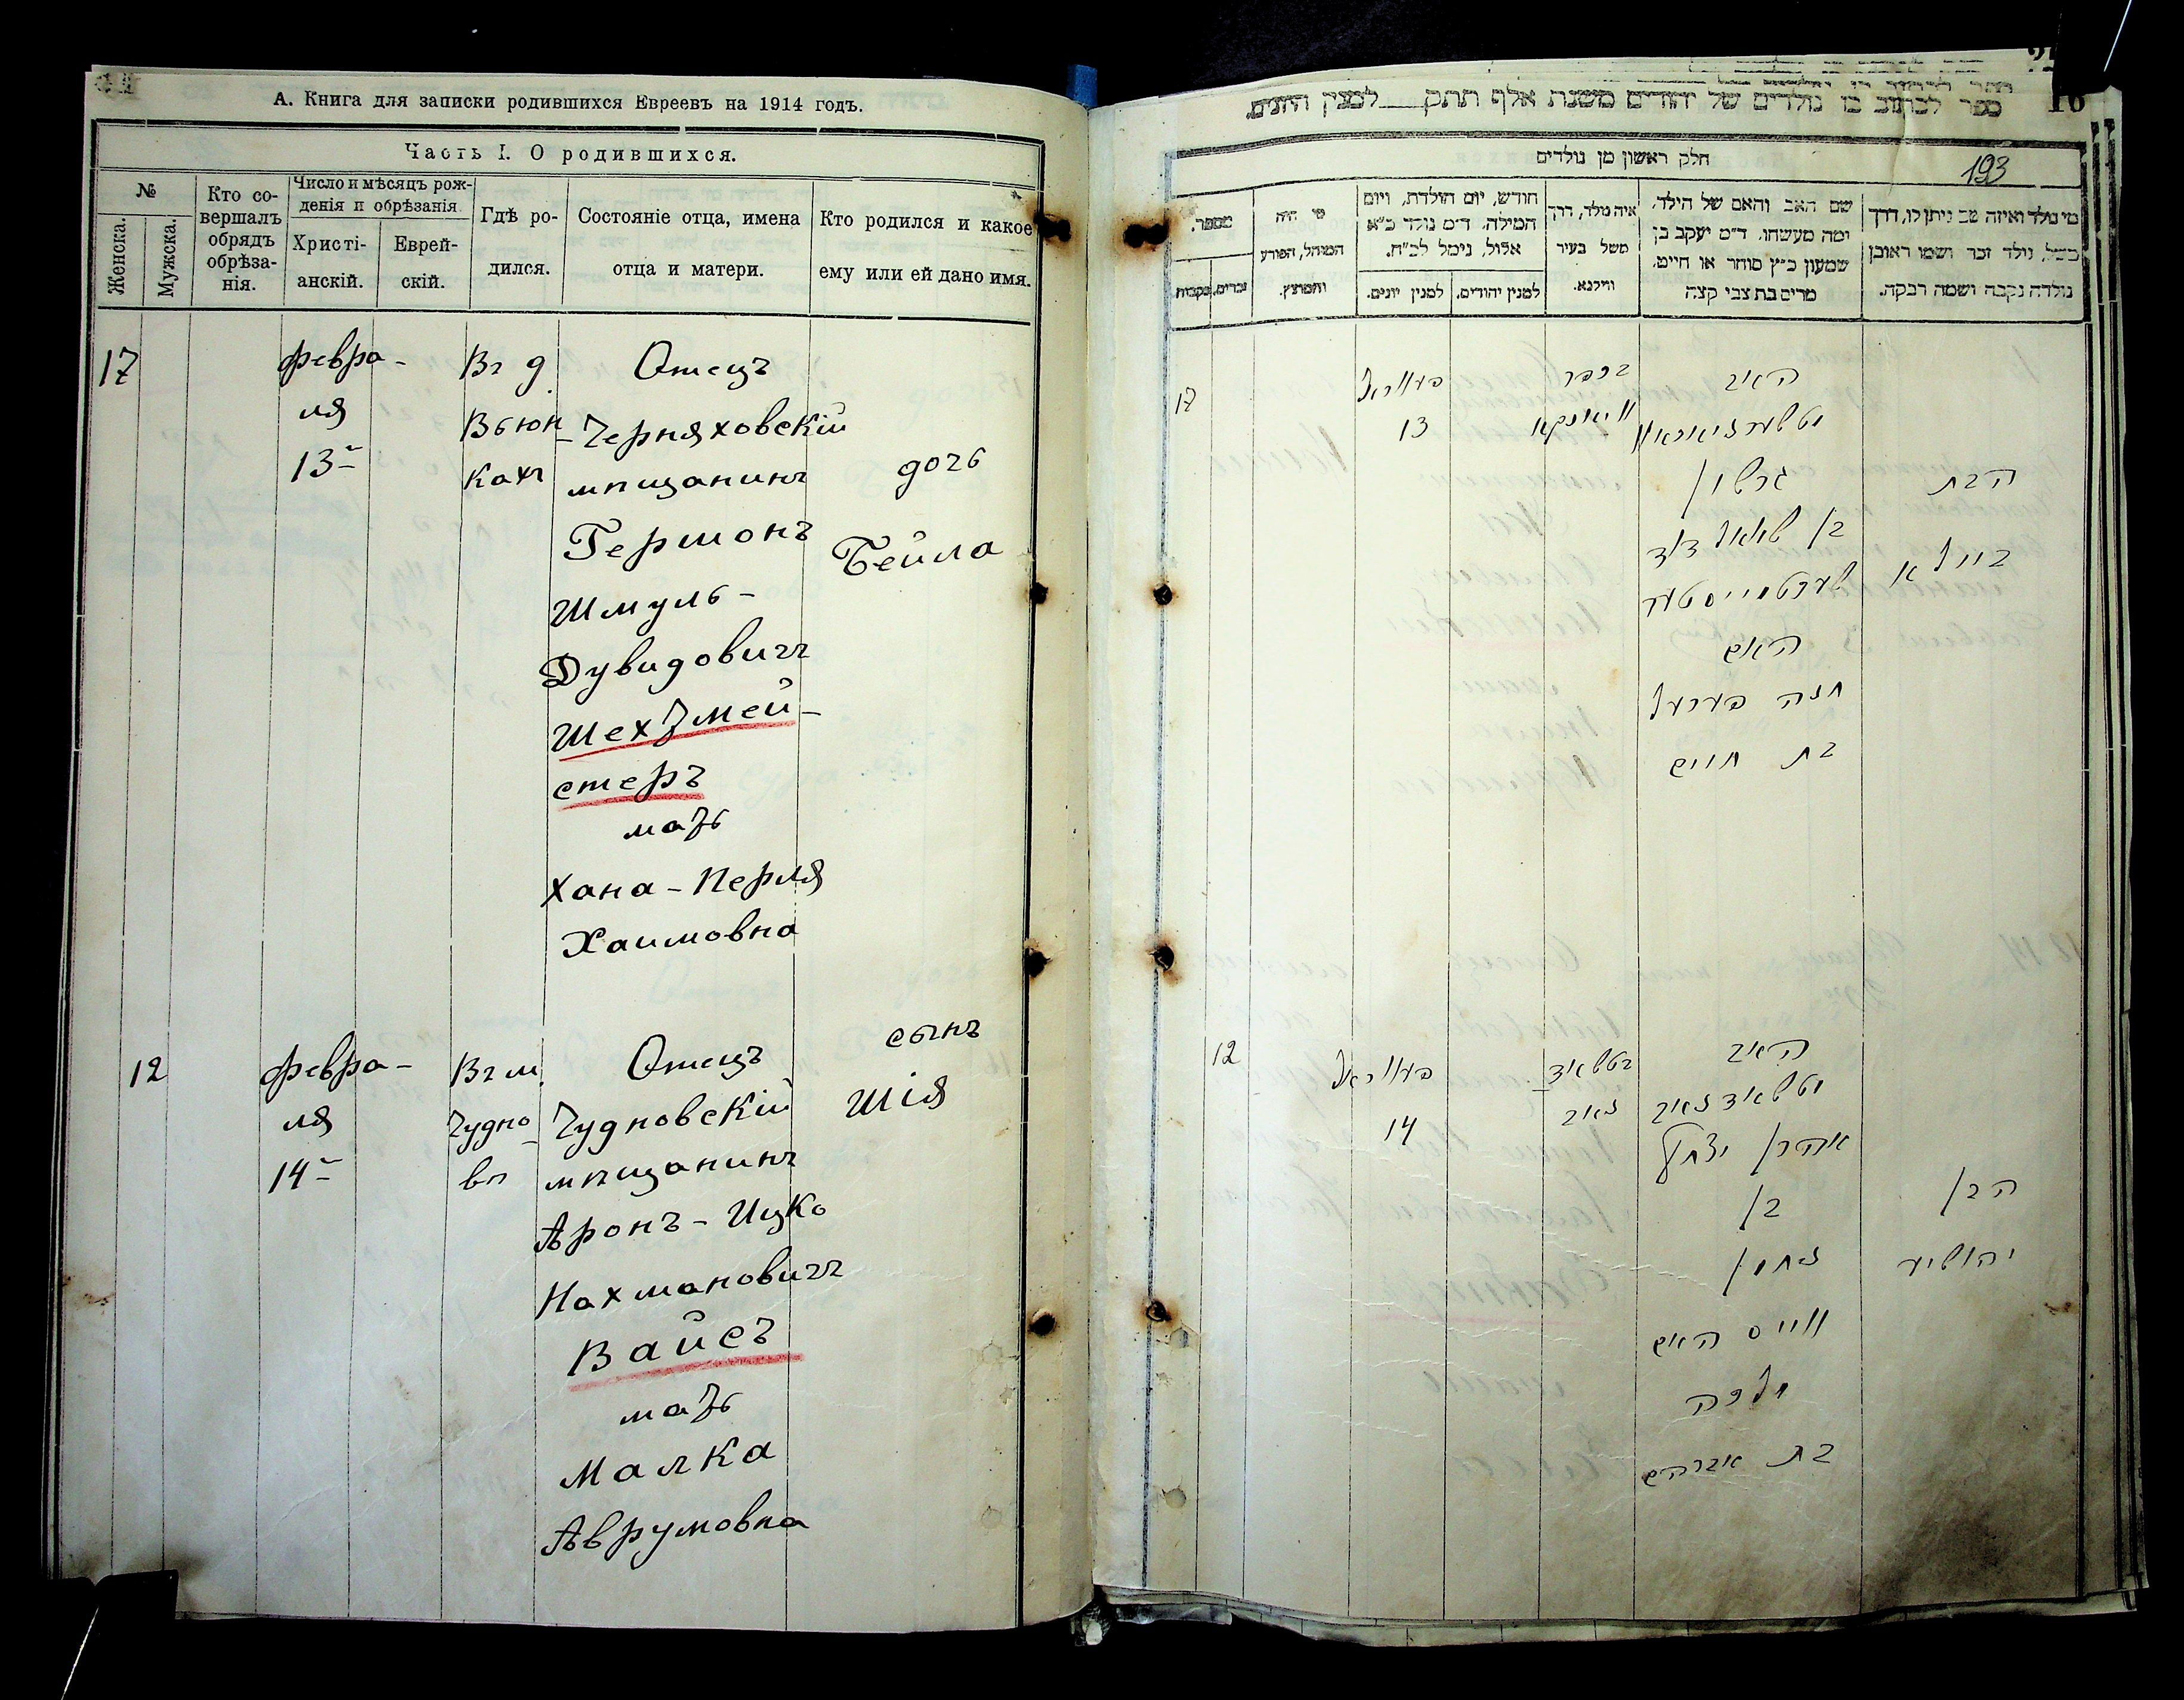 А. Книга для записки родившихся Евреевъ на 1914 годъ.
Часть I. О родившихся.
№
Женска.
Мужска.
Кто со-
вершалъ
обрядъ
обрѣза-
нія.
Число и мѣсяцъ рож-
денія и обрѣзанія.
Христі-
анскій.
Еврей-
скій.
Гдѣ ро-
дился.
Состояніе отца, имена
отца и матери.
Кто родился и какое
ему или ей дано имя.
17
февра-
ля
13
Въ д.
Вьюн-
кахъ
Отецъ
Черняховскій
мѣщанинъ
Гершонъ
Шмуль-
Дувидовичъ
Шехтмей-
стеръ
мать
Хана-Перля
Хаимовна
дочь
Бейла
12
февра-
ля
14
Въ м.
Чудно-
вѣ
Отецъ
Чудновскій
мѣщанинъ
Аронъ-Ицко
Нахмановичъ
Вайсъ
мать
Малка
Аврумовна
сынъ
Шія
16
ספר לכתוב בו נולדים של יהודים משנת אלף תתק למנין היונים.
חלק ראשון מן נולדים
193
מספר.
זכרים.
נקבות.
מי היה
המוהל, הפורע
והמוצץ.
חודש, יום הולדת, ויום
המילה. ד״מ נולד כ״א
אלול, נימל לכ״ח.
למנין יונים.
למנין יהודים.
איה נולד, דרך
משל בעיר
ווילנא.
שם האב והאם של הילד,
ומה מעשהו. ד״מ יעקב בן
שמעון כ״ץ סוחר או חייט.
מרים בת צבי קצה
מי נולד ואיזה שם ניתן לו, דרך
משל, נולד זכר ושמו ראובן
נולדה נקבה ושמה רבקה.
17
פעווראל
13
בכפר
האב
גרשון
בן שמואל דוד
שעכטמייסטער
האם
חנה פערעל
בת חיים
הבת
ביילא
12
פעווראל
14
האב
אהרן יצחק
בן
נחמן
ווייס האם
מלכה
בת אברהם
הבן
יהושיע